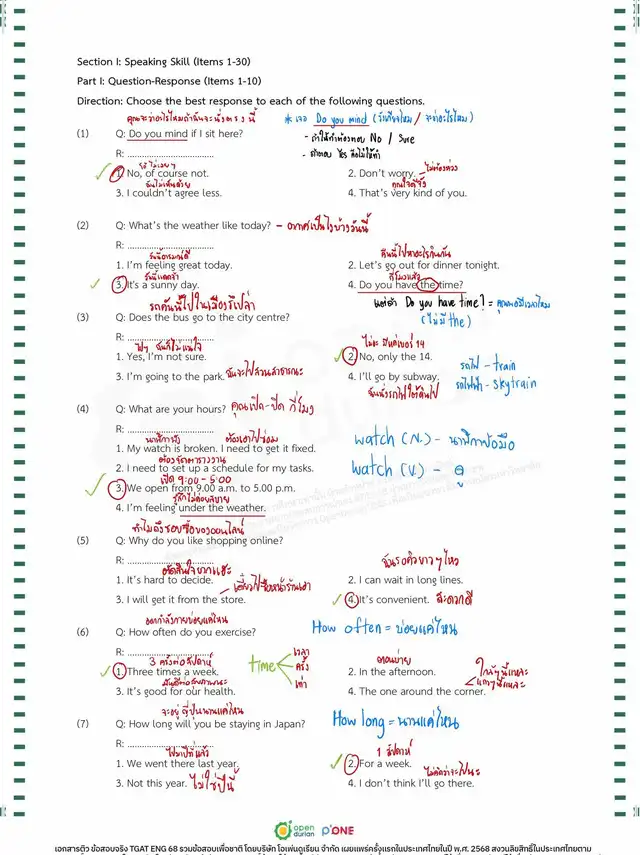 Section I: Speaking Skill (Items 1-30)
Part I: Question-Response (Items 1-10)
Direction: Choose the best response to each of the following questions.
คุณจะว่าอะไรไหมถ้าฉันจะนั่งตรงนี้
* เจอ Do you mind (รังเกียจไหม / จะว่าอะไรไหม)
(1) Q: Do you mind if I sit here?
- ถ้าให้ทำต้องตอบ No / Sure
R: ................................
- ถ้าตอบ Yes คือไม่ให้ทำ
1. No, of course not. 2. Don't worry. ไม่ต้องห่วง
ฉันไม่เห็นด้วย คุณใจดีจัง
3. I couldn't agree less. 4. That's very kind of you.
(2) Q: What's the weather like today? - อากาศเป็นไงบ้างวันนี้
R: ................................
วันนี้อารมณ์ดี คืนนี้ไปหาอะไรกินกัน
1. I'm feeling great today. 2. Let's go out for dinner tonight.
วันนี้แดดจ้า กี่โมงแล้ว
3. It's a sunny day. 4. Do you have the time?
รถคันนี้ไปในเมืองรึเปล่า
แต่ถ้า Do you have time? = คุณพอมีเวลาไหม
(ไม่มี the)
(3) Q: Does the bus go to the city centre?
R: ................................
ใช่ๆ ฉันก็ไม่แน่ใจ ไม่ค่ะ มีแค่เบอร์ 14
1. Yes, I'm not sure. 2. No, only the 14.
รถไฟ - train
3. I'm going to the park. ฉันจะไปสวนสาธารณะ 4. I'll go by subway.
รถไฟฟ้า - skytrain
ฉันนั่งรถไฟใต้ดินไป
(4) Q: What are your hours? คุณเปิด-ปิด กี่โมง
R: ................................
นาฬิกาพัง ต้องเอาไปซ่อม
1. My watch is broken. I need to get it fixed.
watch (N.) - นาฬิกาข้อมือ
ต้องจัดตารางงาน
2. I need to set up a schedule for my tasks.
watch (V.) - ดู
เปิด 9:00 - 5:00
3. We open from 9.00 a.m. to 5.00 p.m.
รู้สึกไม่ค่อยสบาย
4. I'm feeling under the weather.
ทำไมถึงชอบซื้อของออนไลน์
(5) Q: Why do you like shopping online?
R: ................................
ตัดสินใจยากแฮะ ฉันรอคิวยาวๆไหว
1. It's hard to decide. 2. I can wait in long lines.
เดี๋ยวไปซื้อหน้าร้านเอา
3. I will get it from the store. 4. It's convenient. สะดวกดี
ออกกำลังกายบ่อยแค่ไหน
(6) Q: How often do you exercise?
How often = บ่อยแค่ไหน
R: ................................
3 ครั้งต่อสัปดาห์ time เวลา ครั้ง เท่า ตอนบ่าย
1. Three times a week. 2. In the afternoon.
มันดีต่อสุขภาพนะ ใกล้ๆนี้แหละ
แถวๆนี้แหละ
3. It's good for our health. 4. The one around the corner.
จะอยู่ญี่ปุ่นนานแค่ไหน
(7) Q: How long will you be staying in Japan?
How long = นานแค่ไหน
R: ................................
ไปมาปีที่แล้ว 1 สัปดาห์
1. We went there last year. 2. For a week.
ไม่คิดว่าจะไปนะ
3. Not this year. ไม่ใช่ปีนี้ 4. I don't think I'll go there.
open durian P'ONE
เอกสารติว ข้อสอบจริง TGAT ENG 68 รวมข้อสอบเพื่อชาติ โดยบริษัท โอเพ่นดูเรียน จำกัด เผยแพร่ครั้งแรกในประเทศไทยในปี พ.ศ. 2568 สงวนลิขสิทธิ์ในประเทศไทยตาม